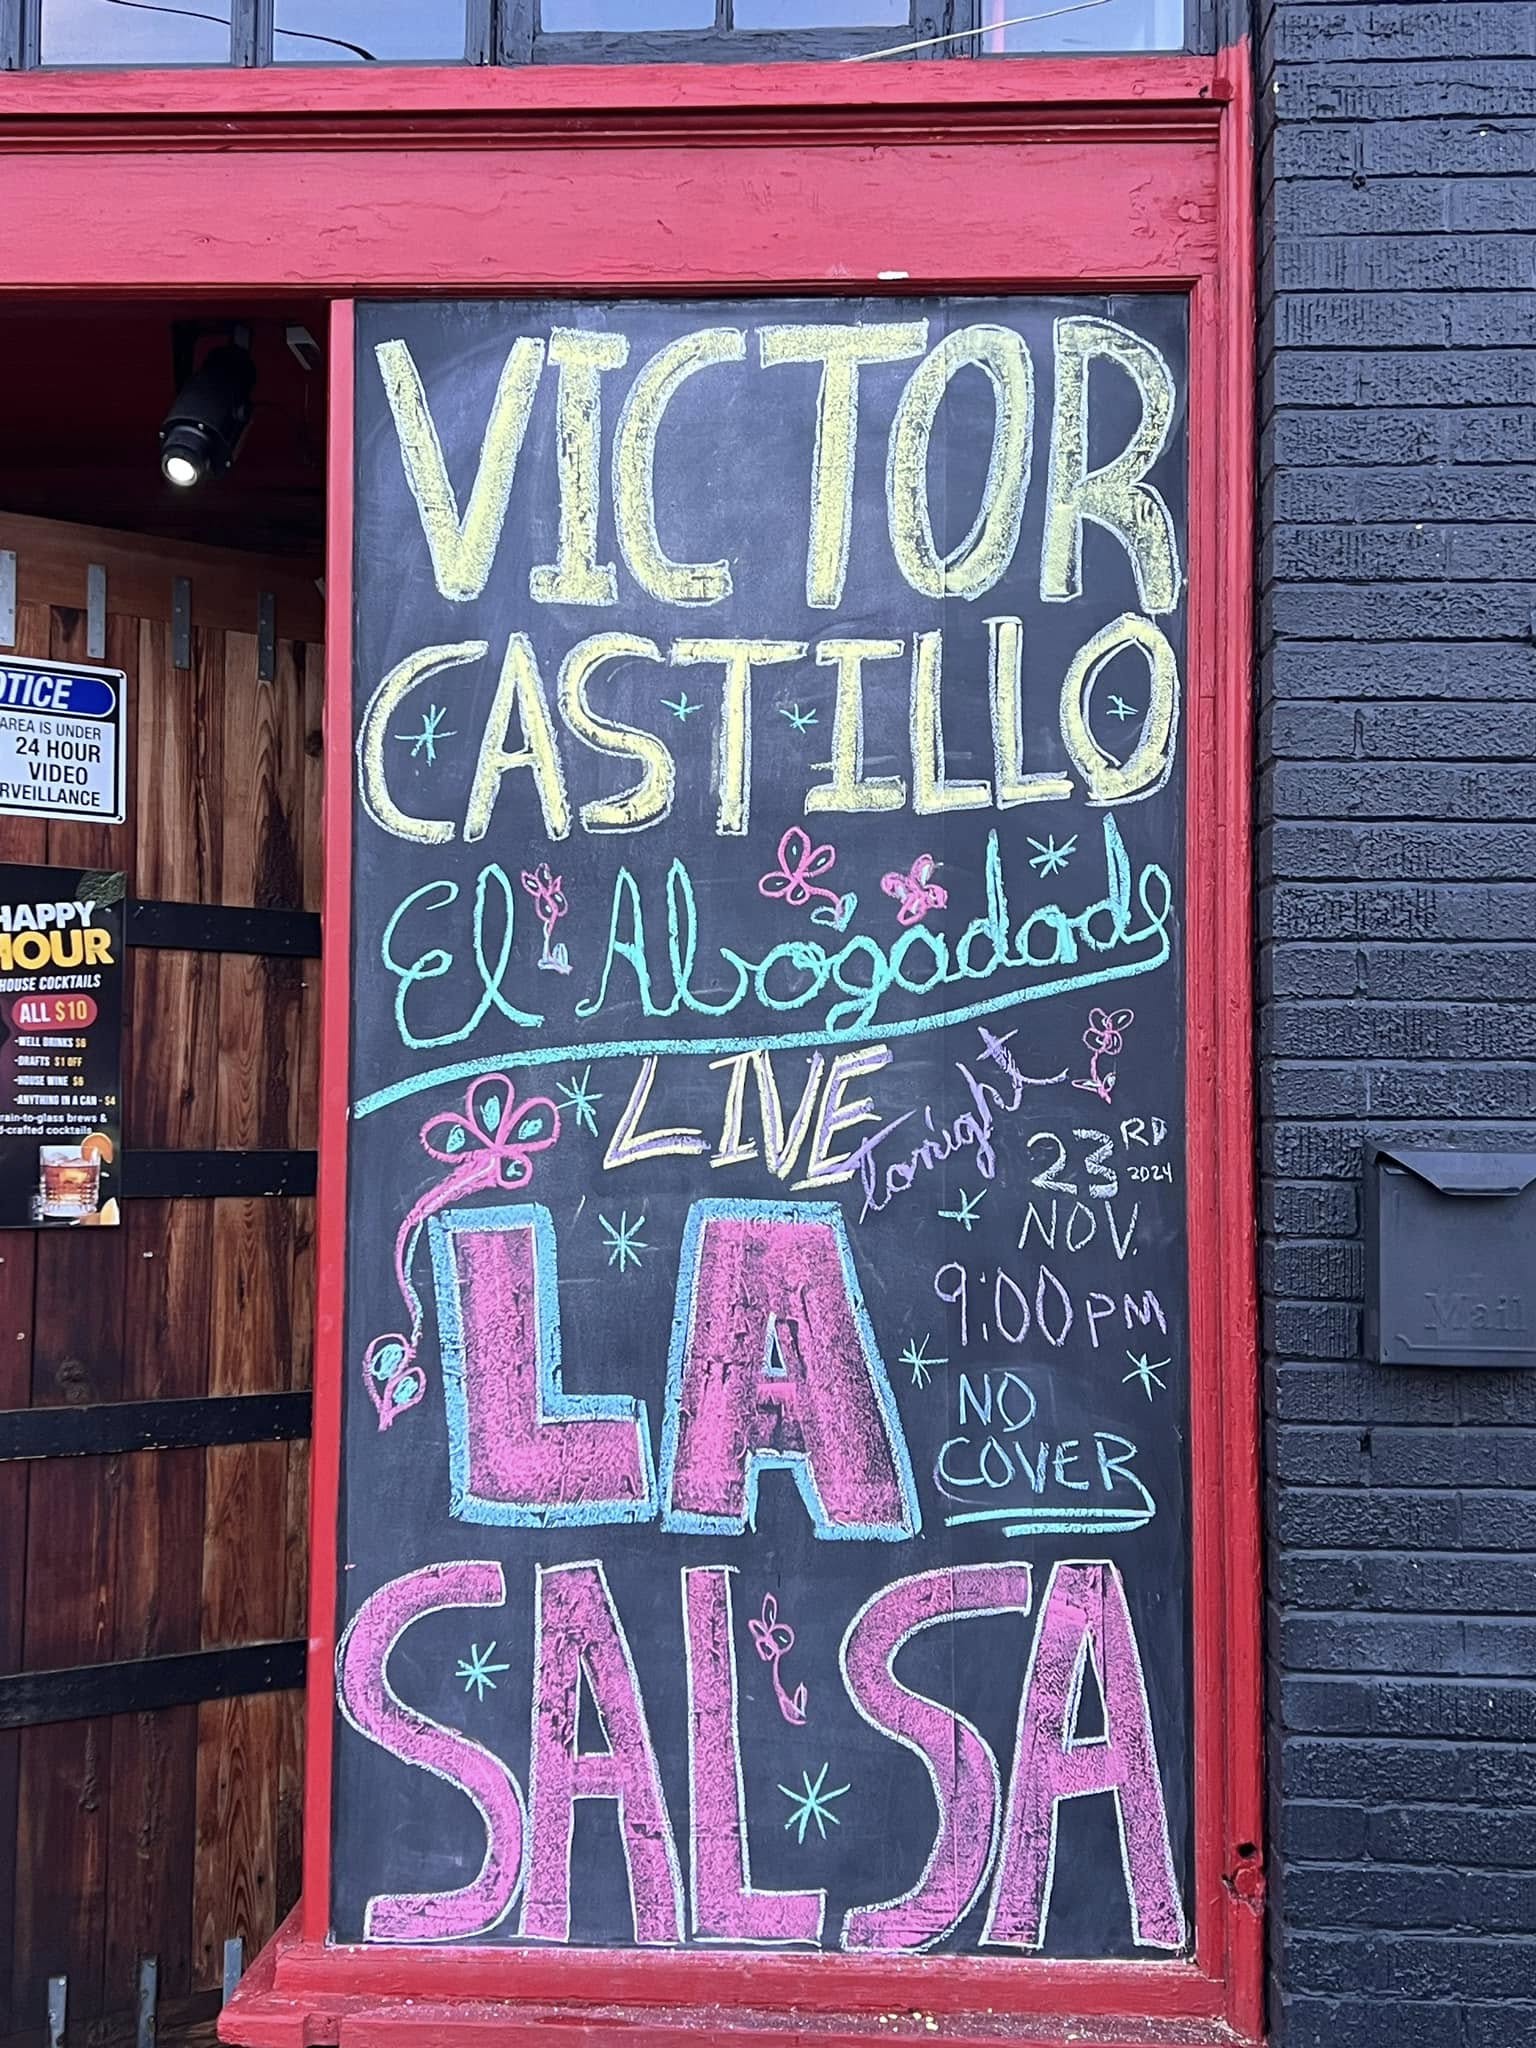 VICTOR
CASTILLO
El Abogadado
LIVE tonight
23RD
2024
NOV.
9:00PM
NO
COVER
LA
SALSA
OTICE
AREA IS UNDER
24 HOUR
VIDEO
RVEILLANCE
HAPPY
HOUR
HOUSE COCKTAILS
ALL $10
-WELL DRINKS $6
-DRAFTS $1 OFF
-HOUSE WINE $6
-ANYTHING IN A CAN - $4
rain-to-glass brews &
d-crafted cocktails
Mail